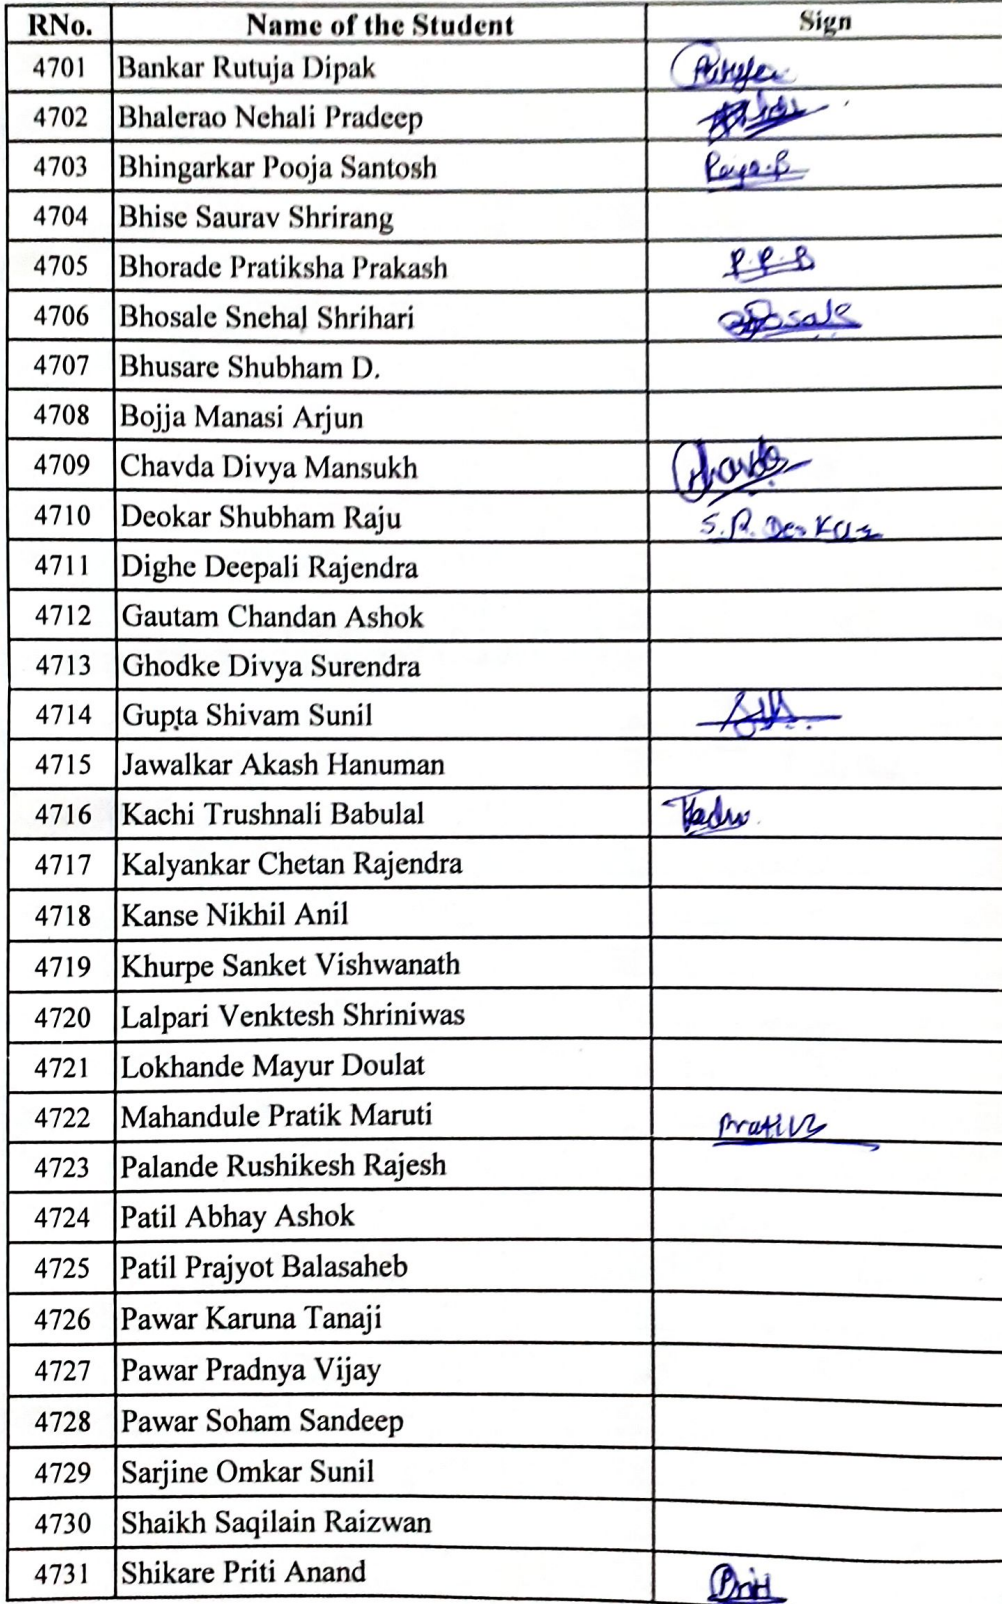 RNo. Name of the Student Sign
4701 Bankar Rutuja Dipak
4702 Bhalerao Nehali Pradeep
4703 Bhingarkar Pooja Santosh
4704 Bhise Saurav Shrirang
4705 Bhorade Pratiksha Prakash P.P.B
4706 Bhosale Snehal Shrihari Bhosale
4707 Bhusare Shubham D.
4708 Bojja Manasi Arjun
4709 Chavda Divya Mansukh Chavda
4710 Deokar Shubham Raju S.R. Deokar
4711 Dighe Deepali Rajendra
4712 Gautam Chandan Ashok
4713 Ghodke Divya Surendra
4714 Gupta Shivam Sunil
4715 Jawalkar Akash Hanuman
4716 Kachi Trushnali Babulal
4717 Kalyankar Chetan Rajendra
4718 Kanse Nikhil Anil
4719 Khurpe Sanket Vishwanath
4720 Lalpari Venktesh Shriniwas
4721 Lokhande Mayur Doulat
4722 Mahandule Pratik Maruti Pratik
4723 Palande Rushikesh Rajesh
4724 Patil Abhay Ashok
4725 Patil Prajyot Balasaheb
4726 Pawar Karuna Tanaji
4727 Pawar Pradnya Vijay
4728 Pawar Soham Sandeep
4729 Sarjine Omkar Sunil
4730 Shaikh Saqilain Raizwan
4731 Shikare Priti Anand Priti